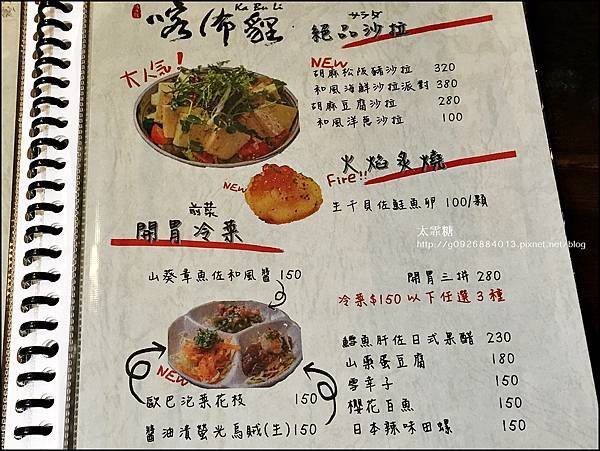 Ka Bu Li
喀佈貍
大人氣！
サラダ
絕品沙拉
NEW
胡麻松阪豬沙拉 320
和風海鮮沙拉派對 380
胡麻豆腐沙拉 280
和風洋蔥沙拉 100
火焰炙燒
Fire!!
NEW
生干貝佐鮭魚卵 100/顆
前菜
開胃冷菜
太霏糖
http://g0926884013.pixnet.net/blog
山葵章魚佐和風醬 150
開胃三拼 280
冷菜$150以下任選3種
NEW
歐巴泡菜花枝 150
醬油漬螢光烏賊(生) 150
鱈魚肝佐日式果醋 230
山藥蛋豆腐 180
雪辛子 150
櫻花白魚 150
日本辣味田螺 150